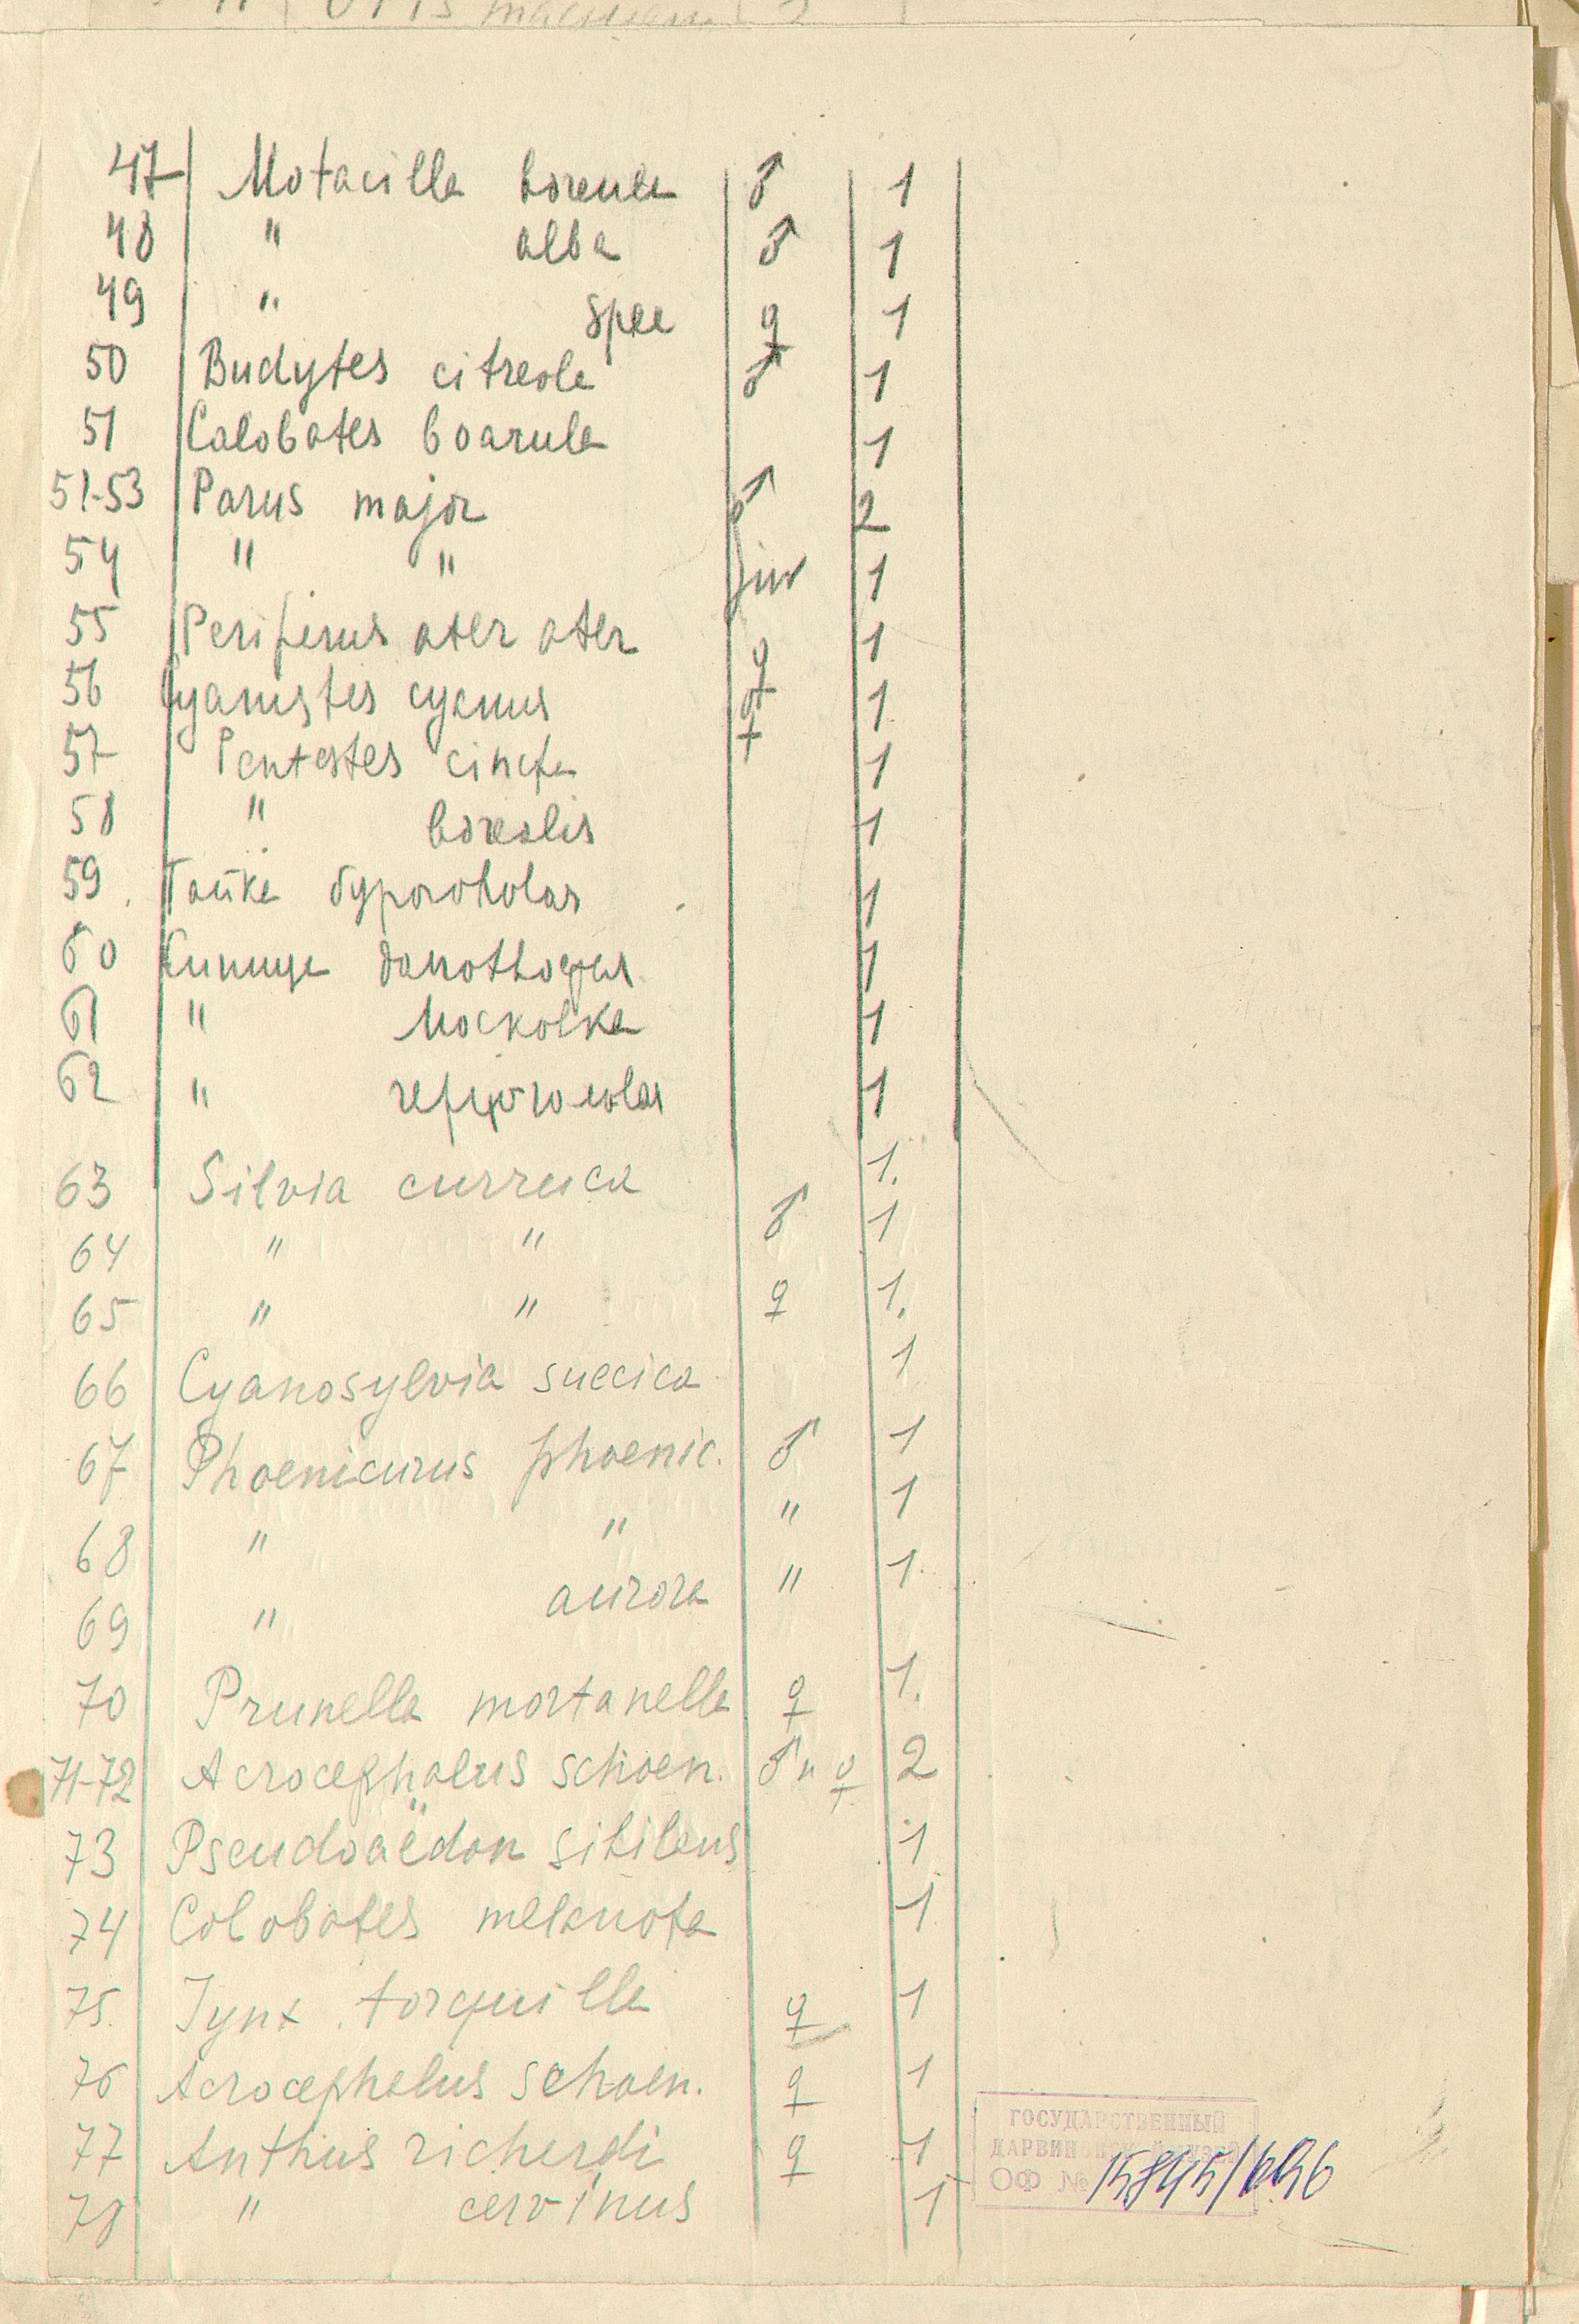 Otis
47 Motacilla ♂ 1
48 " alba ♂ 1
49 " spec ♀ 1
50 Budytes citreola ♂ 1
51 Calobates boarula 1
51-53 Parus major ♂ 2
54 " " juv 1
55 Periparus ater ater ♀ 1
56 Cyanistes cyanus ♀ 1
57 Pentestes cincta 1
58 " borealis 1
59 Гаичка буроголовая 1
60 Синица 1
61 " московка 1
62 " 1
63 Silvia curruca 1.
64 " " ♂ 1
65 " " ♀ 1.
66 Cyanosylvia suecica 1
67 Phoenicurus phoenic. ♂ 1
68 " " " 1
69 " aurora " 1.
70 Prunella montanella ♀ 1.
71-72 Acrocephalus schoen. ♂ и ♀ 2
73 Pseudoaëdon sibilans 1
74 Colobates melanota 1
75. Jynx torquilla ♀ 1
76 Acrocephalus schoen. ♀ 1
77 Anthus richardi ♀ 1
78 " cervinus 1
ГОСУДАРСТВЕННЫЙ
ДАРВИНОВСКИЙ МУЗЕЙ
ОФ № 15845/696